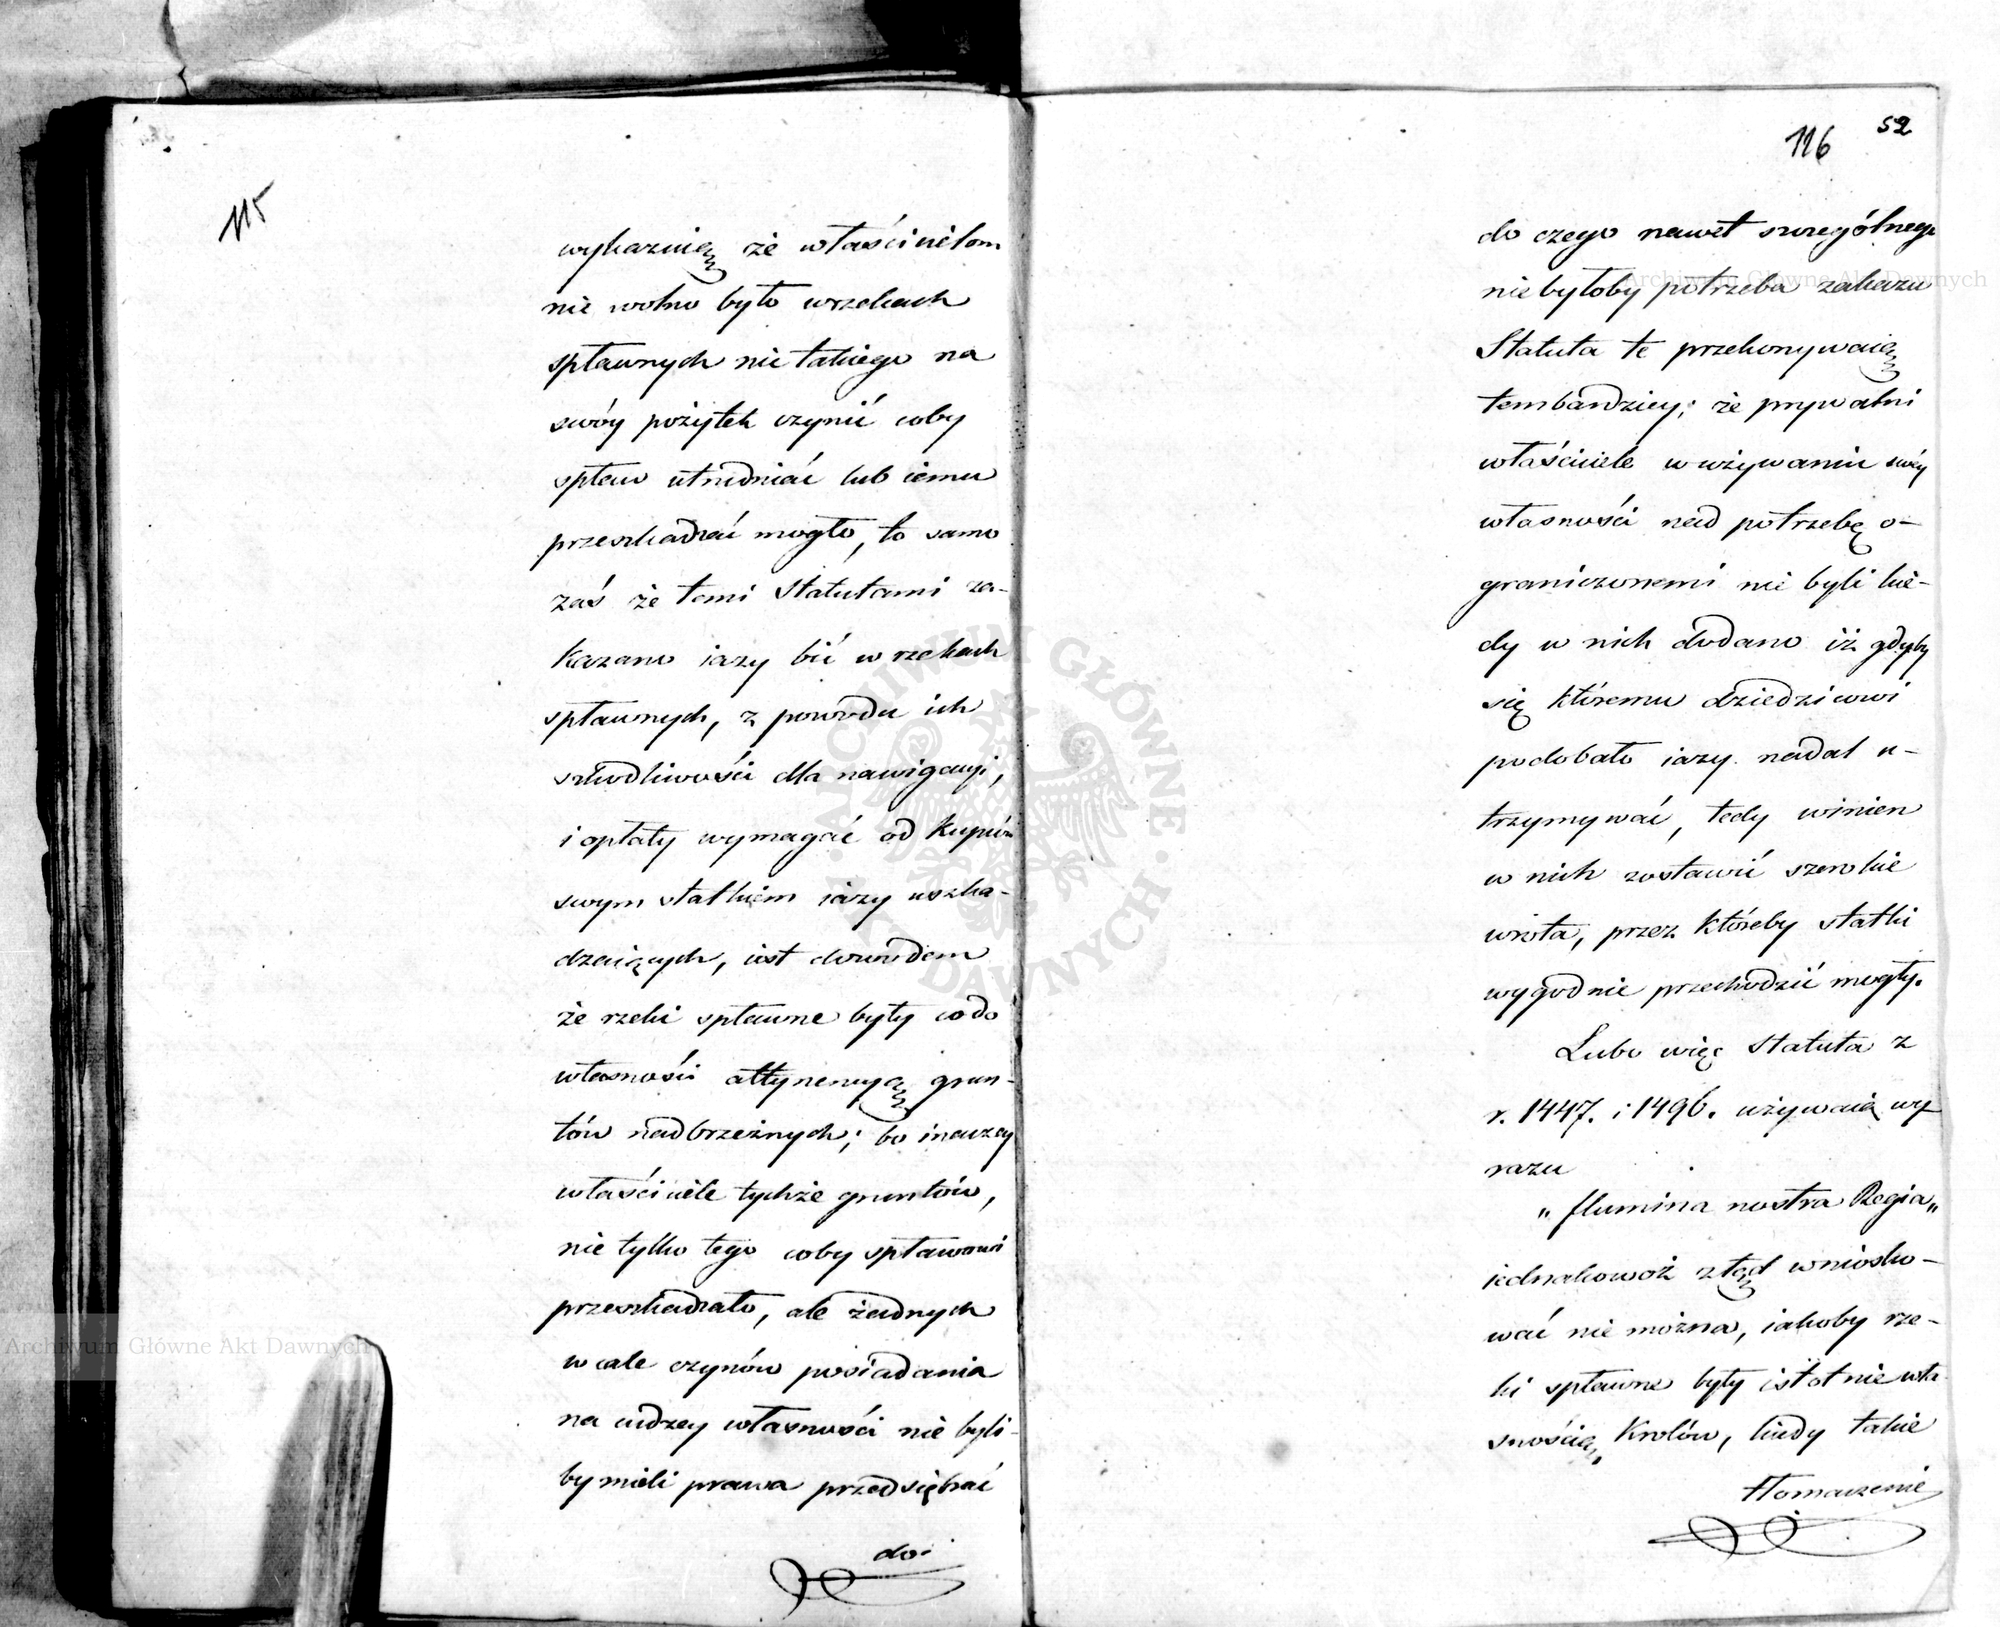 115
wykazuią że właścicielom
nie wolno było wrzekach
spławnych nic takiego na
swóy pożytek czynić coby
spław utrudniać lub iemu
przeszkadzać mogło, to samo
zaś że temi Statutami za-
kazano iazy bić w rzekach
spławnych, z powodu ich
szkodliwości dla nawigacyi,
i opłaty wymagać od kupców
swym statkiem iazy uszka-
dzaiących, iest dowodem
że rzeki spławne były codo
własności attynencyą grun-
tów nadbrzeżnych; bo inaczey
właściciele tychże gruntów,
nie tylko tego coby spławowi
przeszkadzało, ale żadnych
wcale czynów posiadania
na cudzey własności nie byli-
by mieli prawa przedsiębrać
do.
116 52
do czego nawet szczególnego
niebyłoby potrzeba zakazu
Statuta te przekonywaią
tembardziey; że prywatni
właściciele w używaniu swéy
własności nad potrzebę o-
graniczonemi nie byli kie-
dy w nich dodano iż gdyby
się któremu dziedzicowi
podobało iazy nadal u-
trzymywać, tedy winien
w nich zostawić szerokie
wrota, przez któreby statki
wygodnie przechodzić mogły.
Lubo więc Statuta z
r. 1447. i 1496. używaią wy
razu
„ flumina nostra Regia„
iednakowoż ztąd wniosko-
wać nie można, iakoby rze-
ki spławne były istotnie wła-
snością Królów, kiedy takie
tłomaczenie
Archiwum Główne Akt Dawnych
Archiwum Główne Akt Dawnych
ARCHIWUM GŁÓWNE AKT DAWNYCH